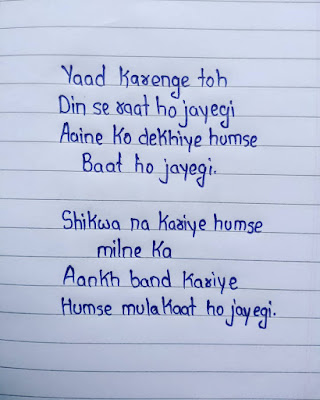 Yaad Karenge toh
Din se raat ho jayegi
Aaine Ko dekhiye humse
Baat ho jayegi.
Shikwa na Kariye humse
milne Ka
Aankh band Kariye
Humse mulakaat ho jayegi.